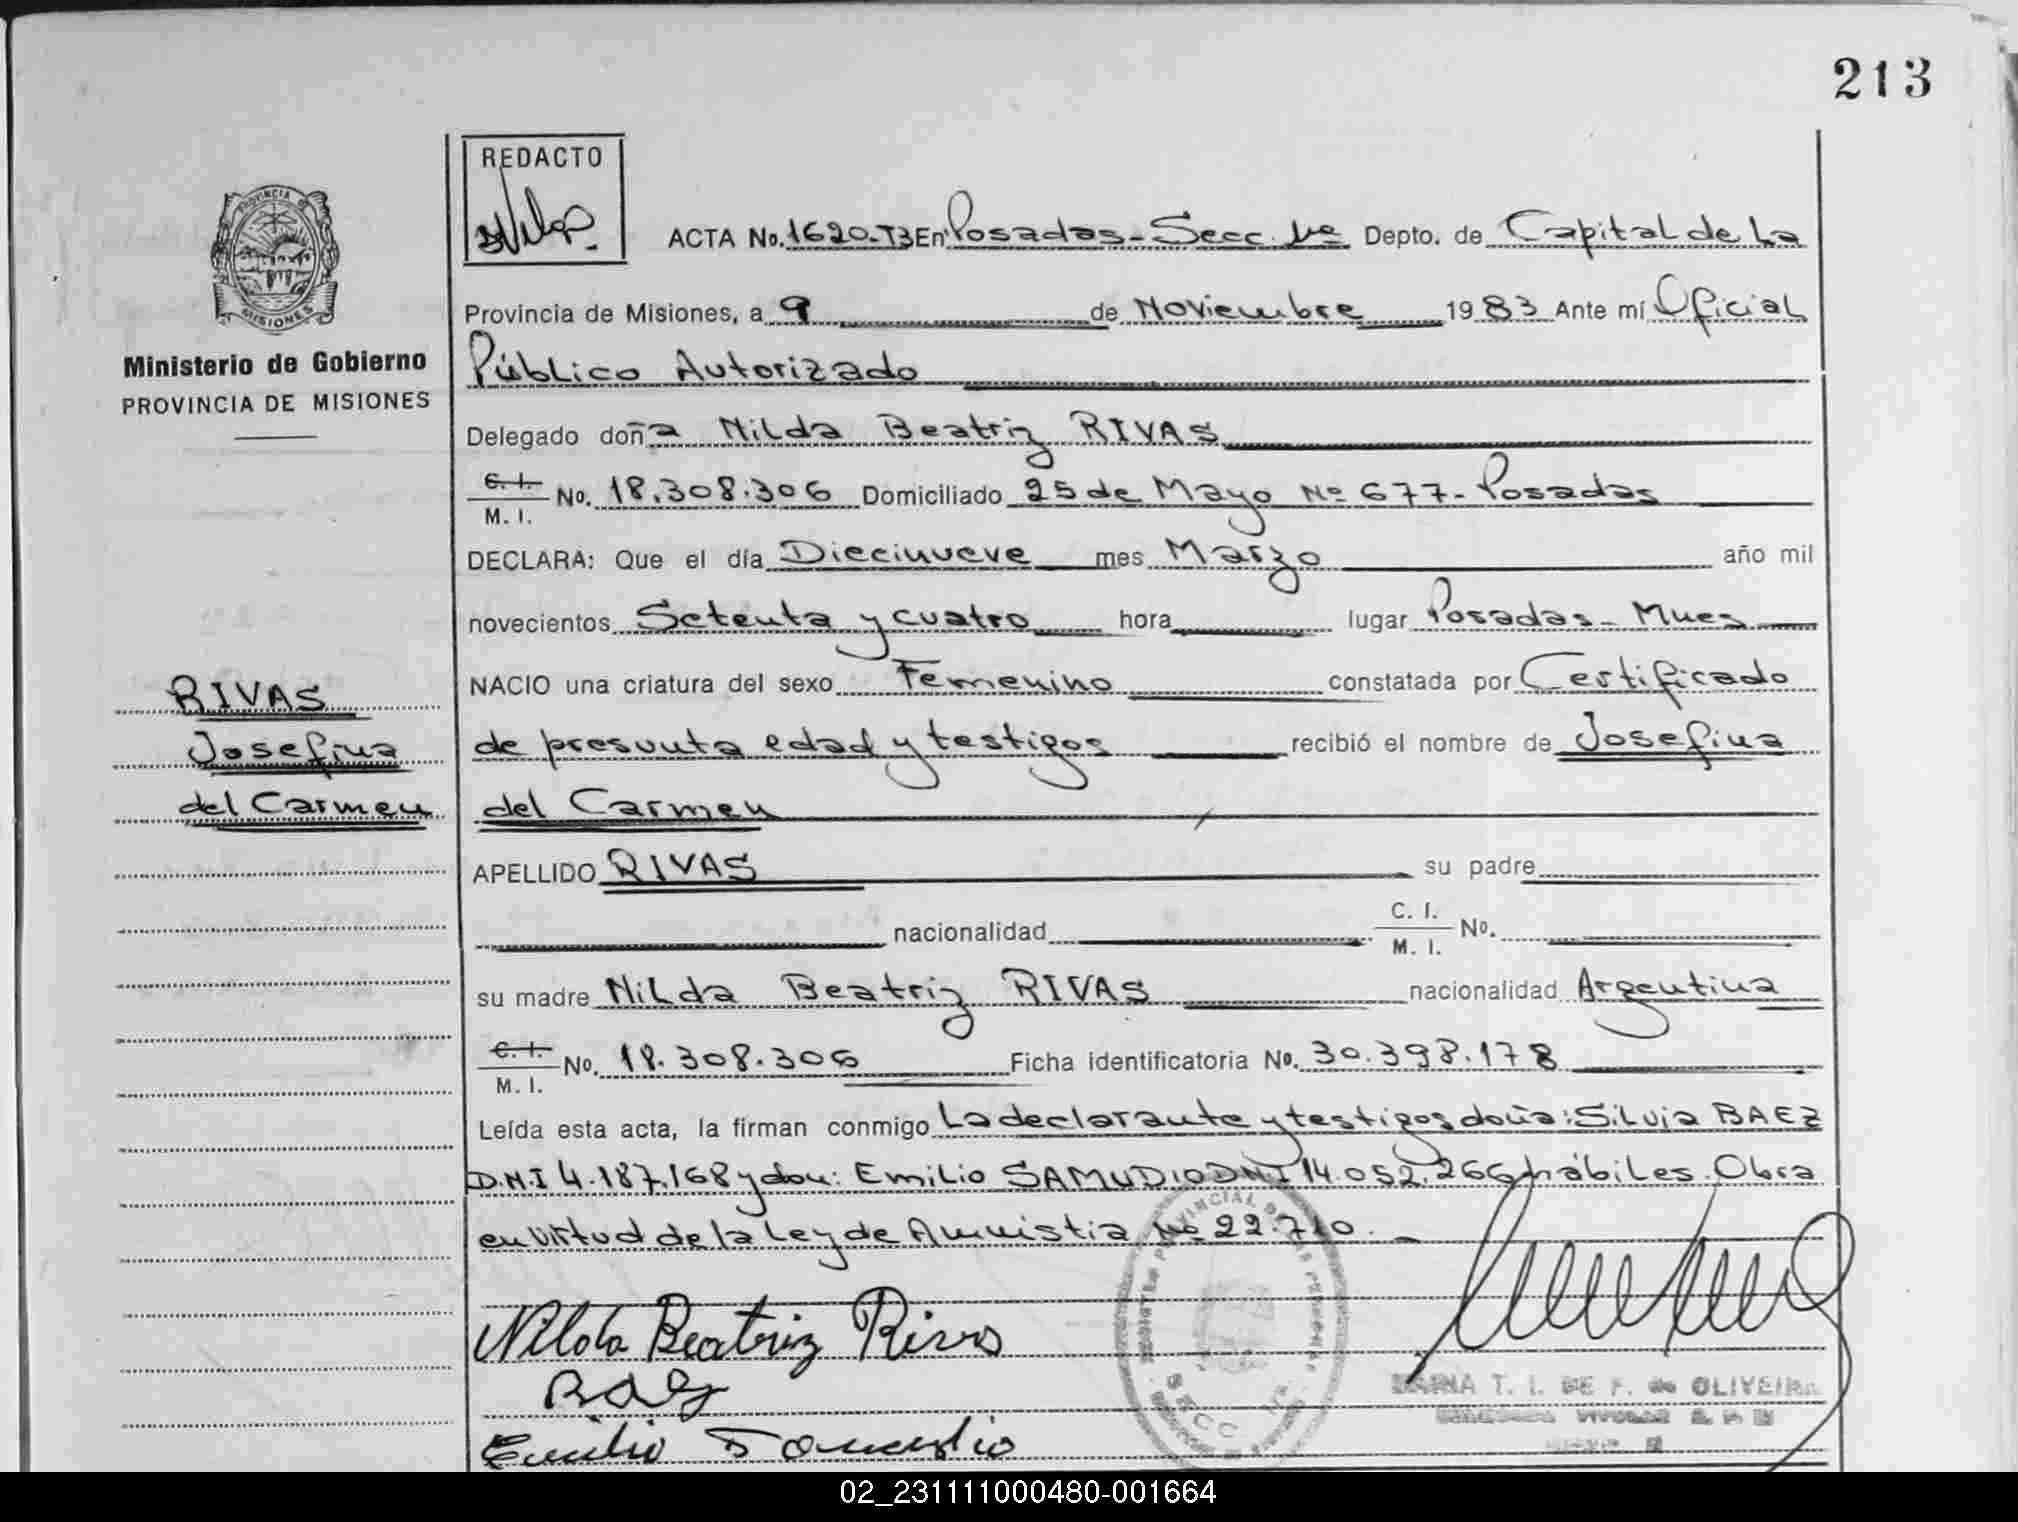 213
REDACTO
ACTA No. 1620-T3 En Posadas - Secc. 1ra Depto. de Capital de La
PROVINCIA DE
MISIONES
Provincia de Misiones, a 9 de Noviembre 1983 Ante mí Oficial
Ministerio de Gobierno
PROVINCIA DE MISIONES
Público Autorizado
Delegado doña Nilda Beatriz RIVAS
C. I.
M. I. No. 18.308.306 Domiciliado 25 de Mayo Nº 677 - Posadas
DECLARA: Que el día Diecinueve mes Marzo año mil
novecientos Setenta y cuatro hora lugar Posadas - Mnes
NACIO una criatura del sexo Femenino constatada por Certificado
RIVAS
Josefina
del Carmen
de presunta edad y testigos recibió el nombre de Josefina
del Carmen
APELLIDO RIVAS su padre
nacionalidad C. I.
M. I. No.
su madre Nilda Beatriz RIVAS nacionalidad Argentina
C. I.
M. I. No. 18.308.306 Ficha identificatoria No. 30.398.178
Leída esta acta, la firman conmigo La declarante y testigos doña: Silvia BAEZ
D.N.I 4.187.168 y don: Emilio SAMUDIO DNI 14.052.266 hábiles. Obra
en virtud de la Ley de Amnistia Nº 22.710.
Nilda Beatriz Rivas
Emilio Samudio
PROVINCIAL DE LAS PERSONAS
SECC
MARIA T. I. DE F. de OLIVEIRA
02_231111000480-001664